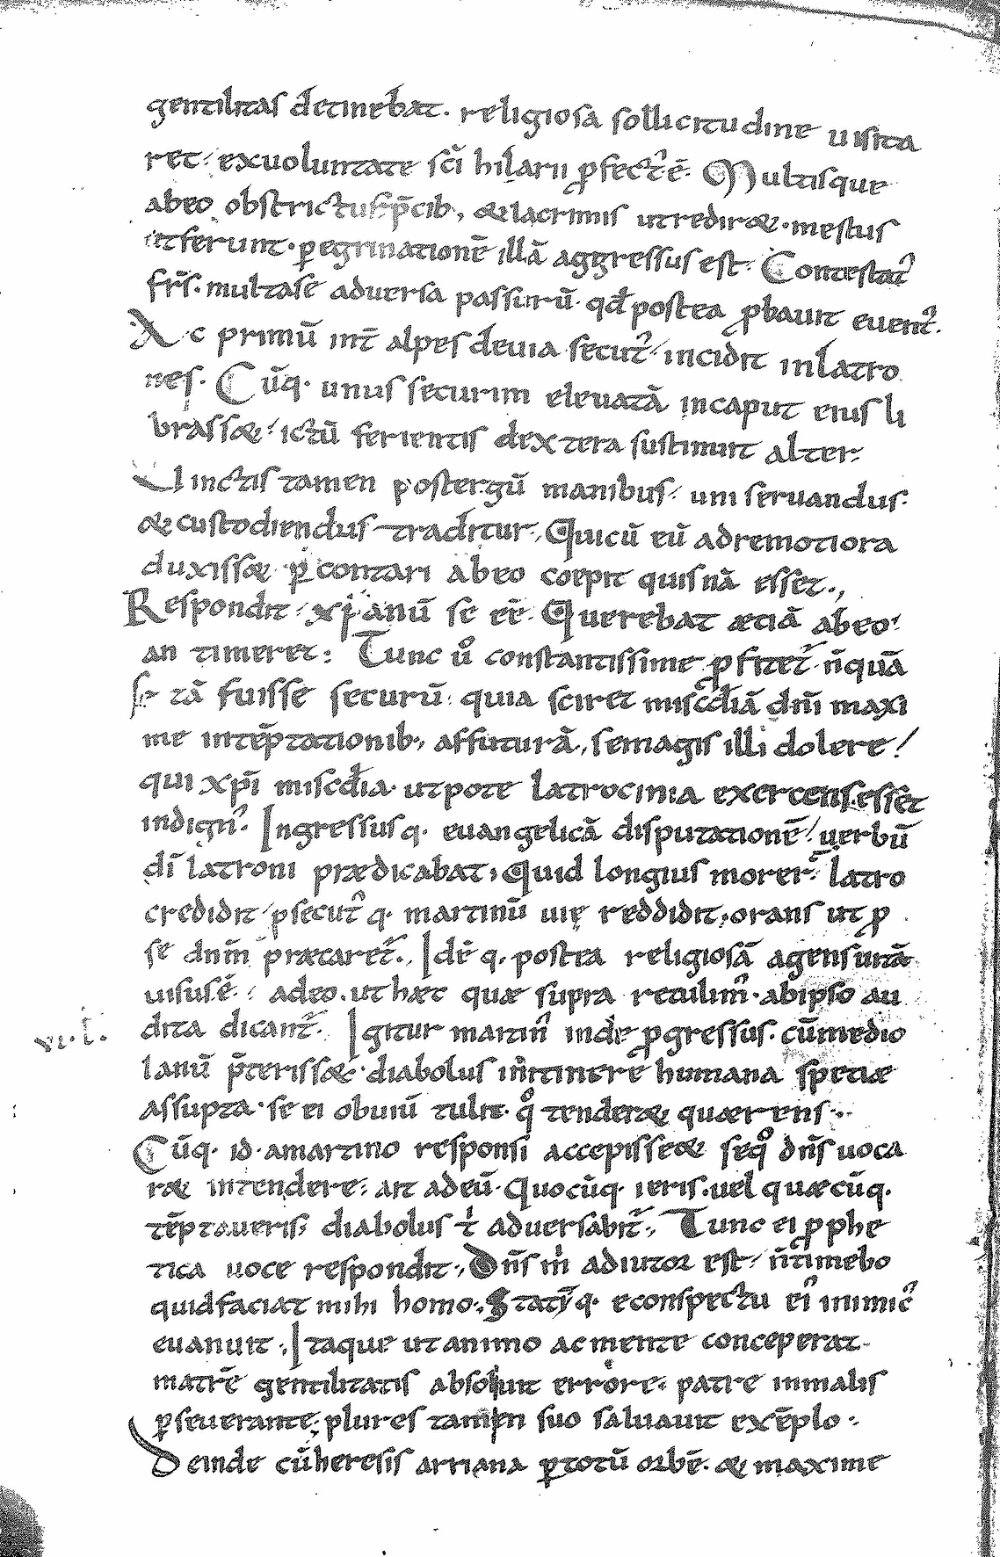 gentilitas detinebat. religiosa sollicitudine uisita
ret. exuoluntate sc̄i hilarii ꝓfect᷒ ē. Multisque
abeo obstrictus p̄cib; & lacrimis utredir&. mestus
utferunt. ꝑegrinationē illā aggressus est. Contestat᷒
fr̄s. multase aduersa passurū. qđ postea ꝓbauit euent᷒.
Ac primū int̄ alpes deuia secut᷒. incidit inlatro
nes. Cūq. unus securim eleuatā incaput eius li
brass&. ictū ferientis dextera sustinuit alter.
Uinctis tamen postergū manibus. uni seruandus.
& custodiendus traditur. Quicū eū adremotiora
duxiss& ꝑcontari abeo coepit quisnā esset.,
Respondit. xp̄ianū se eē. Querebat &iā abeo.
an timeret. Tunc u͛o constantissime ꝓfitet᷒. n̄quā
se tā fuisse securū. quia sciret misc̄diā dn̄i maxi
me intēptationib; affuturā., semagis illi dolere!
qui xp̄i misc̄dia. utpote latrocinia exercens. esset
indign᷒. Ingressusq. euangelicā disputationē. uerbū
dī latroni prædicabat, Quid longius morer᷒. latro
credidit. ꝑsecut᷒ q. martinū uię reddidit, orans ut ꝓ
se dn̄m præcaret᷒., Idē q. postea religiosā agens uitā
uisus ē. adeo. ut hæc quæ supra retulim᷒. abipso au
dita dicant᷒. Igitur martin᷒ inde ꝓgressus. cū medio
lanū p̄teriss&. diabolus initinere humana spetiæ
assupta. se ei obuiū tulit. q͛o tender& quærens..
Cūq. id. amartino responsi accepiss& se q͛o dn̄s uoca
r& intendere. ait adeū. Quocūq. ieris. uel quæcūq.
tēptaueris, diabolus t͛ aduersabit᷒., Tunc ei ꝓphe
tica uoce respondit., Dn̄s m͛ adiutor est. n̄timebo
quid faciat mihi homo., Statī q. econspectu ei᷒ inimic᷒
euanuit., Itaque ut animo ac mente conceperat.
matrē gentilitatis absoluit errore. patre inmalis
ꝑseuerante. plures tamen suo saluauit exēplo.
Deinde cū heresis arriana ꝑtotū orbē. & maxime